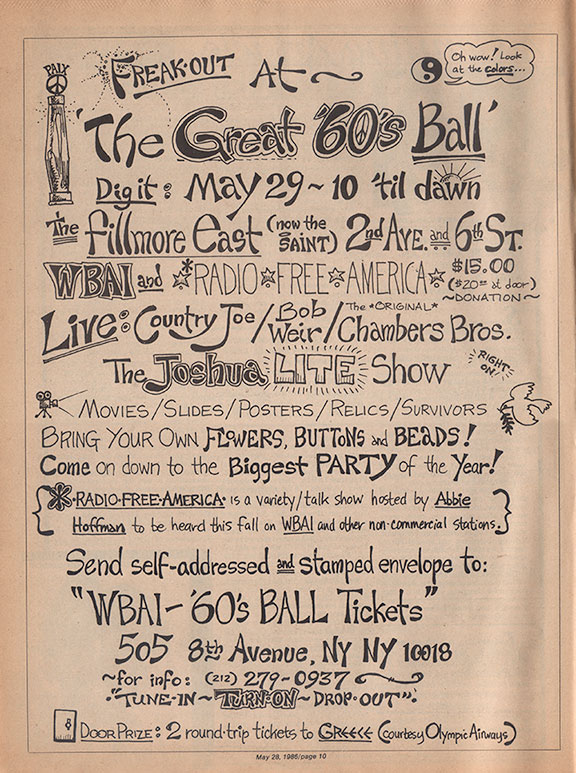 PAIX
FREAK·OUT At ~
Oh wow! Look
at the colors...
'The Great '60's Ball'
Dig it: May 29 ~ 10 'til dawn
The Fillmore East (now the SAINT) 2nd AVE. and 6th ST.
WBAI and *RADIO*FREE*AMERICA* $15.00
($20.00 at door)
~DONATION~
Live: Country Joe/Bob Weir/The *ORIGINAL* Chambers Bros.
The Joshua LITE Show
RIGHT-ON!
MOVIES/SLIDES/POSTERS/RELICS/SURVIVORS
BRING YOUR OWN FLOWERS, BUTTONS and BEADS!
Come on down to the Biggest PARTY of the Year!
{*·RADIO·FREE·AMERICA· is a variety/talk show hosted by Abbie
Hoffman to be heard this fall on WBAI and other non-commercial stations.}
Send self-addressed and stamped envelope to:
"WBAI-'60's BALL Tickets"
505 8th Avenue, NY NY 10018
~for info: (212) 279-0937
·"TUNE-IN~TURN-ON~DROP-OUT"·
DOOR PRIZE: 2 round-trip tickets to GREECE (courtesy Olympic Airways)
May 28, 1986/page 10